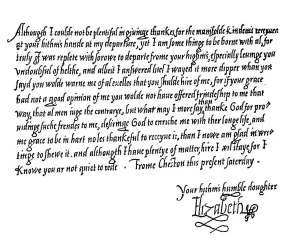 Although I coulde not be plentiful in givinge thankes for the manifolde kindenis receyued
at your hithnis hande at my departure, yet I am some thinge to be borne with al, for
truly I was replete with sorowe to departe frome your highnis, especially leuinge you
vndoubtful of helthe, and albeit I answered litel I wayed it more dipper whan you
sayd you wolde warne me of al euelles that you shulde hire of me, for if your grace
had not a good opinion of me you wolde not haue offered frindeship to me that
way, that al men iuge the contrarye, but what may I more say than thanke God for pro=
uidinge suche frendes to me, desiringe God to enriche me with ther longe life, and
me grace to be in hart no les thankeful to receyue it, than I nowe am glad in wri=
tinge to shewe it. and although I haue plentye of matter, hire I wil staye for I
knowe you ar not quiet to rede. Frome Cheston this present saterday.
Your hithnis humble doughter
Elizabeth